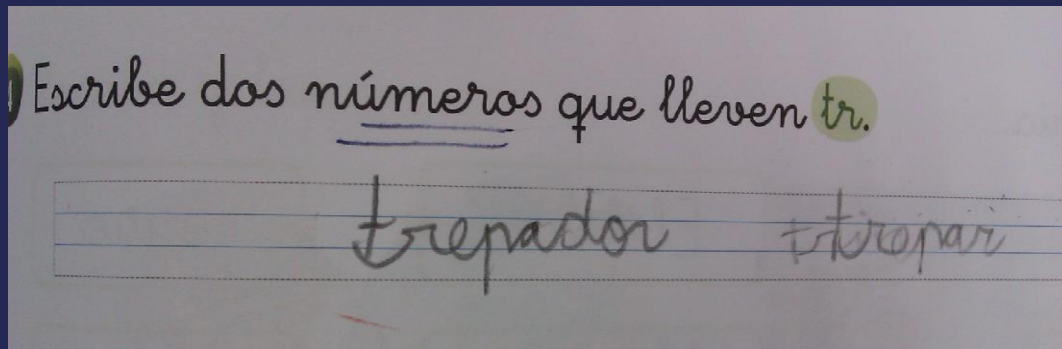 Escribe dos números que lleven tr.
trepador trepar